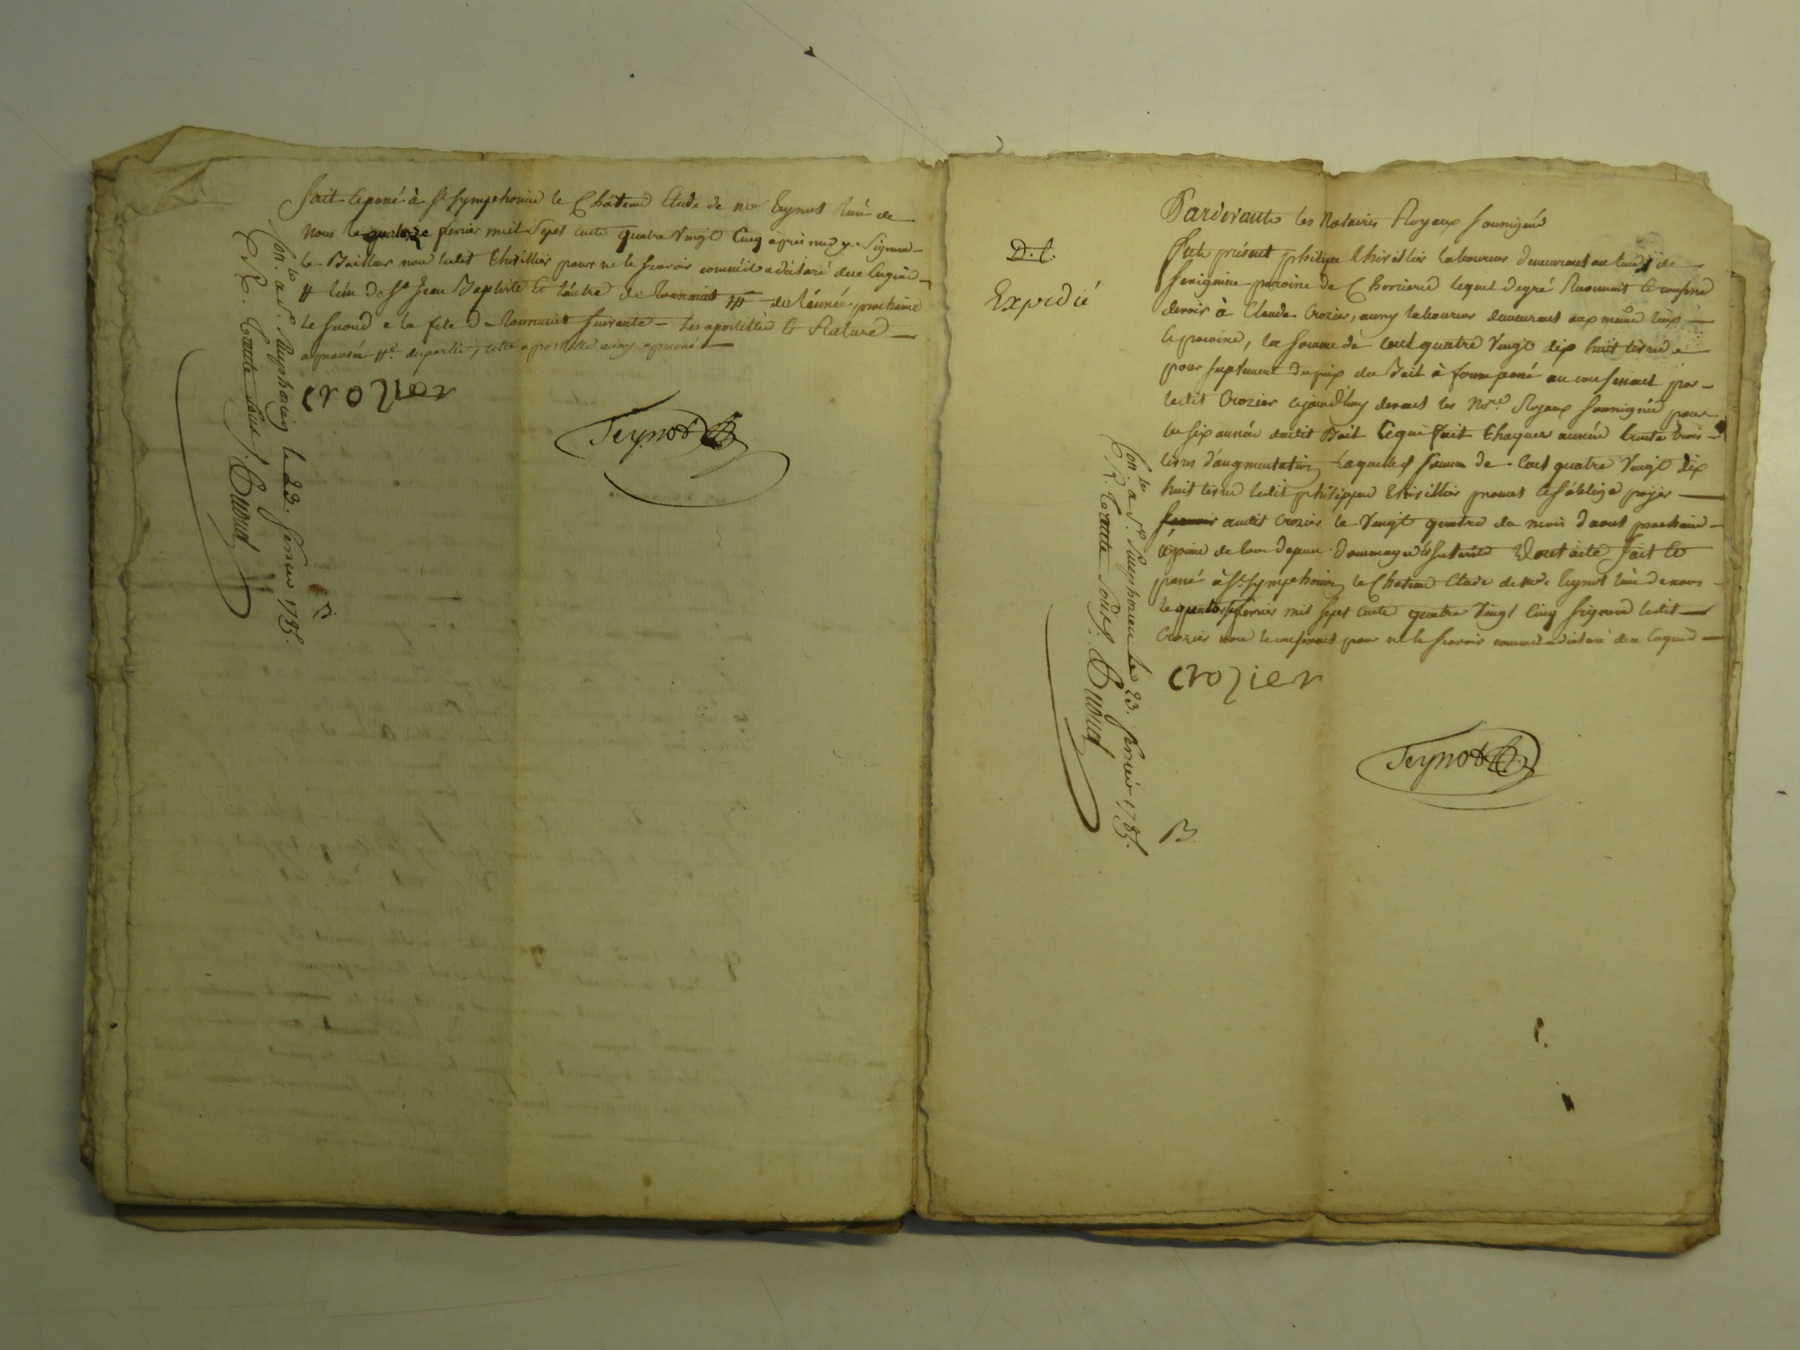 fait et passé à St Symphorien le Château Etude de me Teynot l'un de
nous le quatorze fevrier mil sept cents quatre vingt cinq après midy Signera
le Bailleur non ledit Thivillier pour ne le scavoir comme il a déclaré de ce enquis
# l'un de St Jean Baptiste et l'autre de Toussaint ## de l'année prochaine
le second a la fete de Toussaint suivante
Crozier
Teynot
Con.lé a St Simphorien le 23. fevrier 1785.
R. trente sous
D. C.
Expedié
Pardevant les Notaires Royaux soussignés
fut présent philippe Thivillier laboureur demeurant au lieu de
paroisse de lequel de gré Reconnoit et confesse
devoir à Claude Crozier, aussy laboureur demeurant aux même lieux
et paroisse, la somme de cent quatre vingt dix huit livres
pour suplement du prix du Bail à ferme passé au confessant par
ledit Crozier cejourd'huy devant les Nres Royaux soussignés pour
les six années dudit Bail ce qui fait chaque année trente trois
livres d'augmentation laquelle somme de cent quatre vingt dix
huit livres ledit philippe Thivillier promet et s'oblige payer
audit Crozier le vingt quatre du mois d'aout prochain
à peine de tous depens dommages interêts Dont acte fait et
passé à St Symphorien le Chateau Etude de Me Teynot l'un de nous
le quatorze fevrier mil sept cents quatre vingt cinq signera ledit
Crozier non le confessant pour ne le scavoir comme a déclaré de ce enquis
Crozier
Teynot
Con.lé a St Simphorien le 23. fevrier 1785.
R. trente sous
B